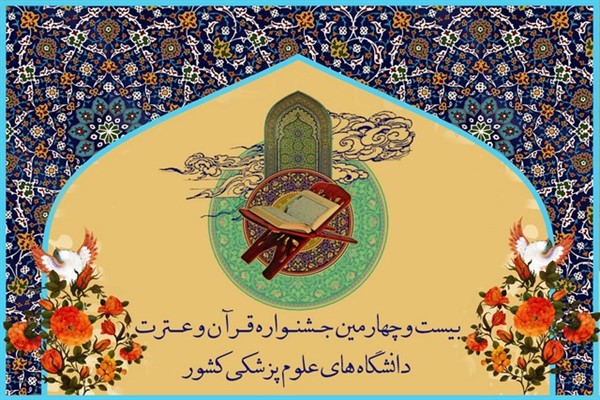 بیست و چهارمین جشنواره قرآن و عترت
دانشگاه های علوم پزشکی کشور